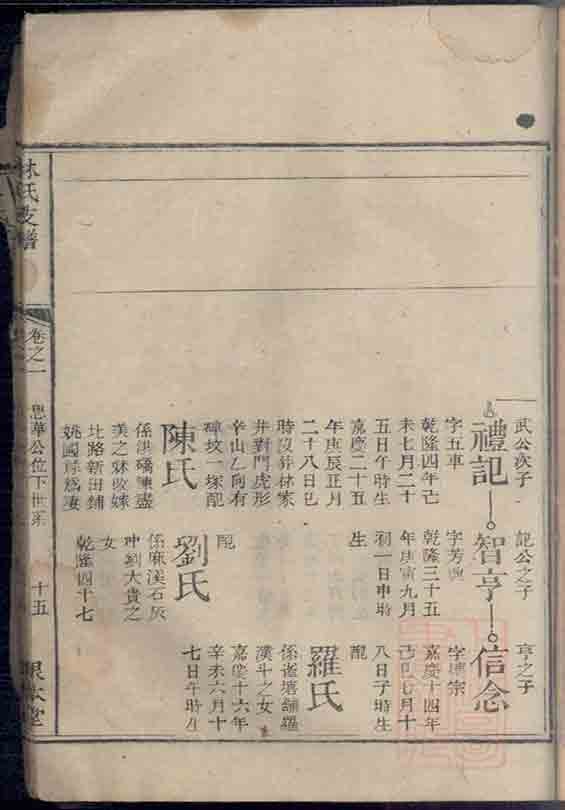 武公次子
禮記
字五車
乾隆四年己
未七月二十
五日午時生
嘉慶二十五
年庚辰正月
二十八日巳
時沒葬林家
井對門虎形
辛山乙向有
碑坟一塚配
陳氏
係洪橋陳盛
美之妹改嫁
北路新田鋪
姚國
記公之子
智亨
字芳
乾隆三十五
年庚寅九月
初一日申時
生
配
劉氏
係麻溪石灰
冲劉大貴之
女
乾隆四十七
亨之子
信念
字 宗
嘉慶十四年
己巳七月十
八日子時生
配
羅氏
係 塘舖羅
漢斗之女
嘉慶十六年
辛未六月十
七日午時生
林氏支譜
卷之一
思華公位下世系
十五
本堂